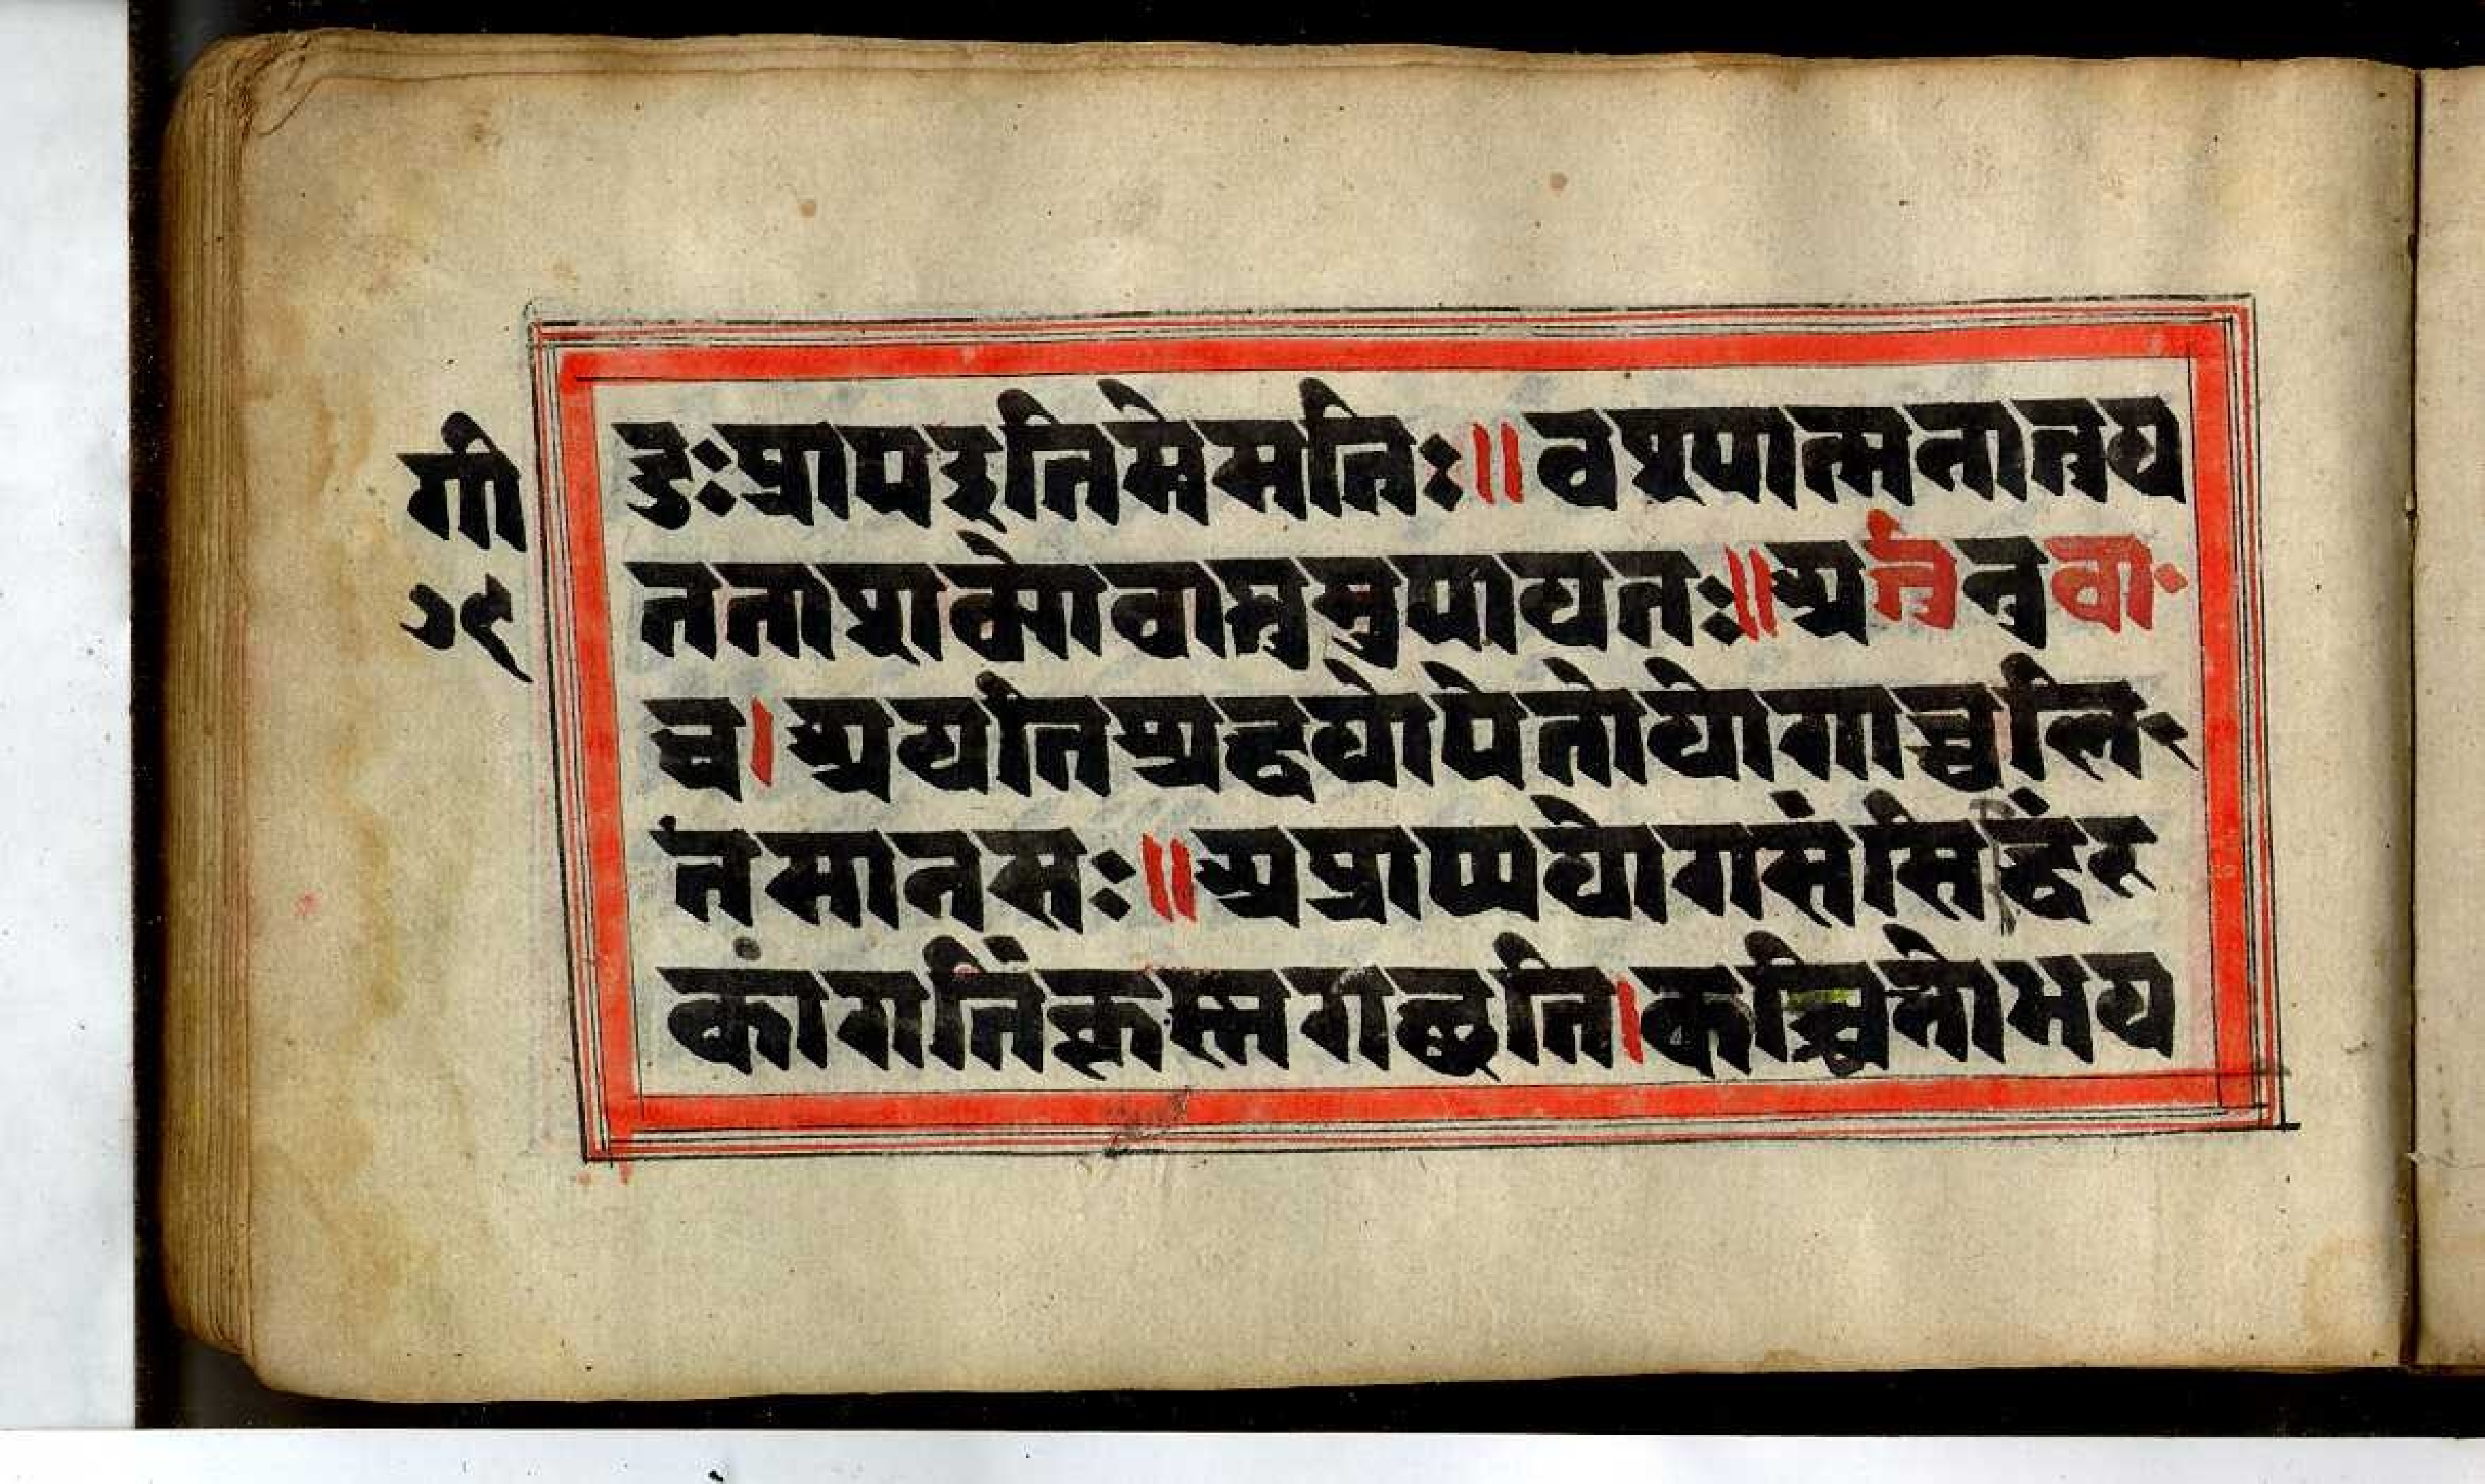 गी
२९
ङुःप्रापइतिमेमतिः॥वश्यात्मनातुय
तताशक्योवाप्तुमुपायतः॥अर्जुनउवा
च।अयतिश्रद्धयोपेतोयोगाच्चलि
तमानसः॥अप्राप्ययोगसंसिद्धिं
कांगतिंकृष्णगच्छति।कच्चिन्नोभय